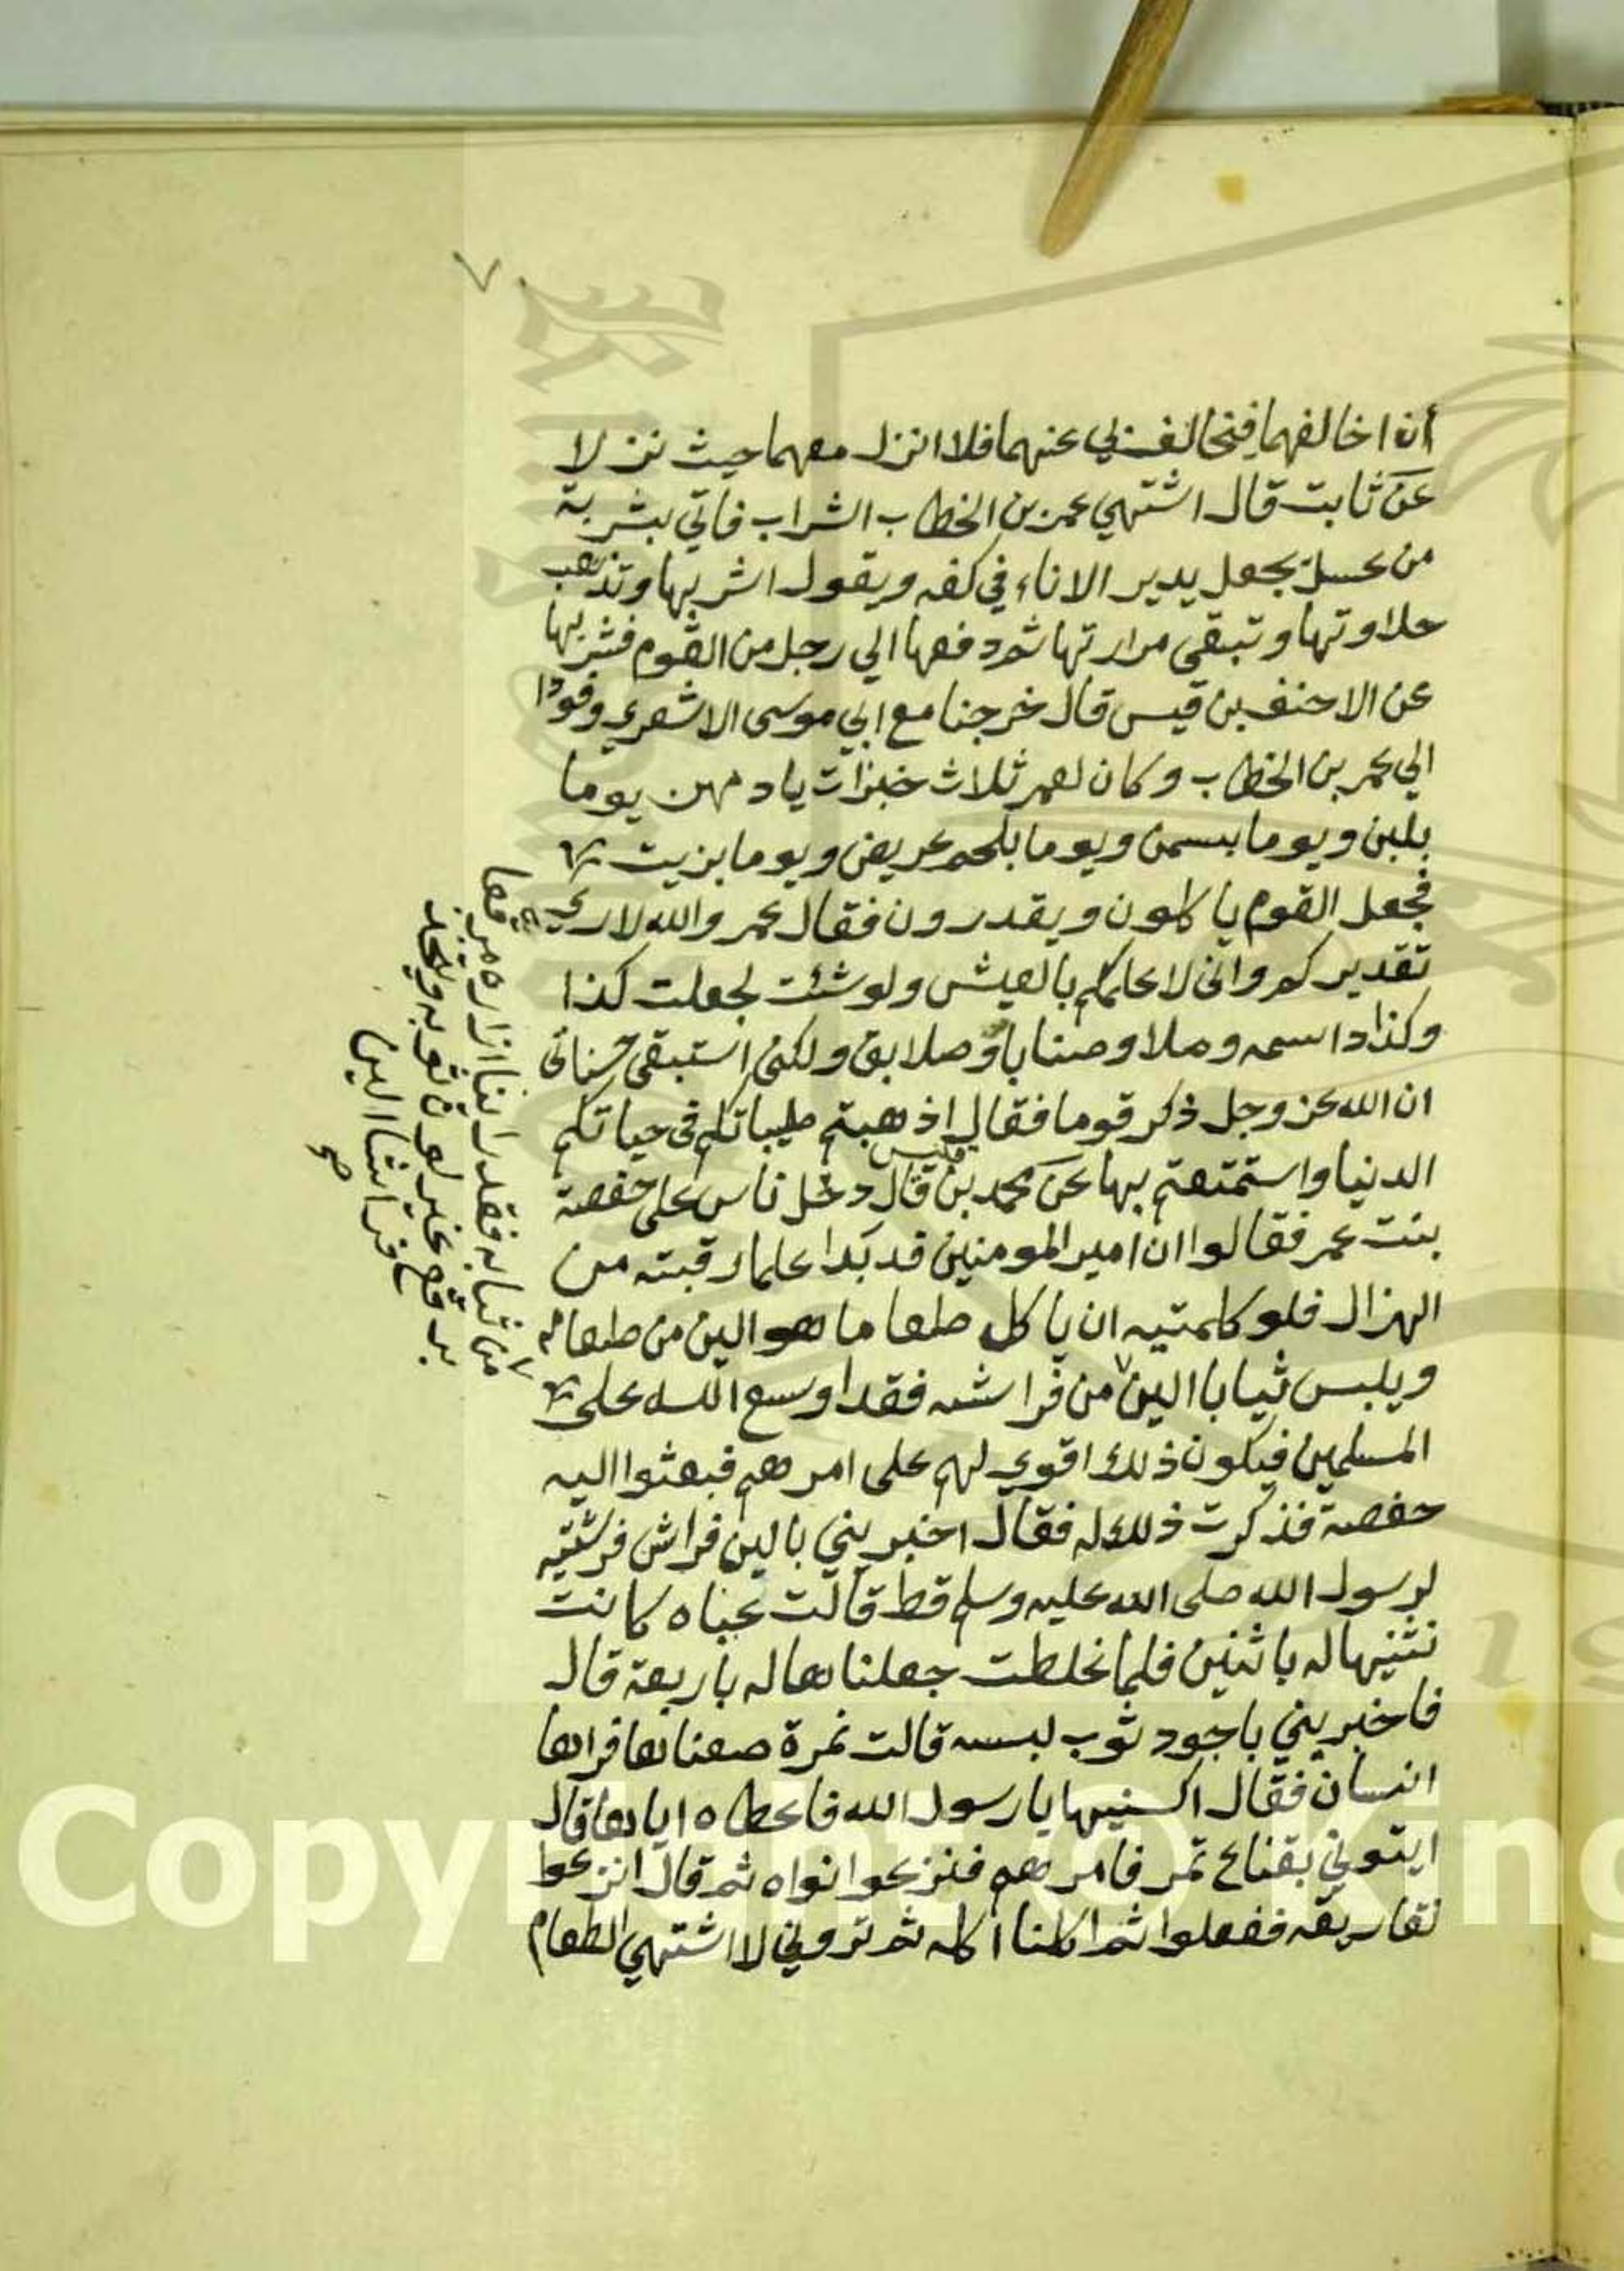 ٧
أن اخالفهما فيخالف بي عنهما فلا انزل معهما حيث نزلا
عن ثابت قال اشتهي عمر بن الخطاب الشراب فاتي بشربة
من عسل بجعل يدير الاناء في كفه ويقول اشربها وتذهب
حلاوتها وتبقى مرارتها ثم دفعها الي رجل من القوم فشربها
عن الاحنف بن قيس قال خرجنا مع ابي موسى الاشعري وفودا
الي عمر بن الخطاب وكان لعمر ثلاث خبزات يادمهن يوما
بلبن ويوما بسمن ويوما بلحم عريض ويوما بزيت
فجعل القوم ياكلون ويقدرون فقال عمر والله لاري
تقديركم واني لاعلمكم بالعيش ولو شئت لجعلت كذا
وكذا داسمه وصلا وصنابا وصلايق ولكني استبقي حسناتي
ان الله عز وجل ذكر قوما فقال اذهبتم طيباتكم في حياتكم
الدنيا واستمتعتم بها عن محمد بن قيس قال دخل ناس على حفصة
بنت عمر فقالوا ان امير المومنين قد بدا علبا رقبته من
الهزال فلو كلمتيه ان ياكل طعاما هو الين من طعامه
ويلبس ثيابا الين من فراشه فقد اوسع الله على
المسلمين فيكون ذلك اقوي لهم على امرهم فبعثوا اليه
حفصة فذكرت ذلك له فقال اخبريني بالين فراش فرشتيه
لرسول الله صلى الله عليه وسلم قط قالت عباه كانت
نثنيها له باثنين فلما غلظت جعلناها له باربعة قال
فاخبريني باجود ثوب لبسه قالت نمرة صعناها فراها
انسان فقال اكسنيها يا رسول الله فاعطاه اياها قال
ايتوني بقناع تمر فامرهم فنزعوا نواه ثم قال انزعوا
تفاريقه ففعلوا ثم اكلنا اكله ثم تروني لا اشتهي الطعام
من ثيابه فقد راينا ازاره مرقعا
برقع غير لون ثوبه ويتخذ
فراشا الين
صح